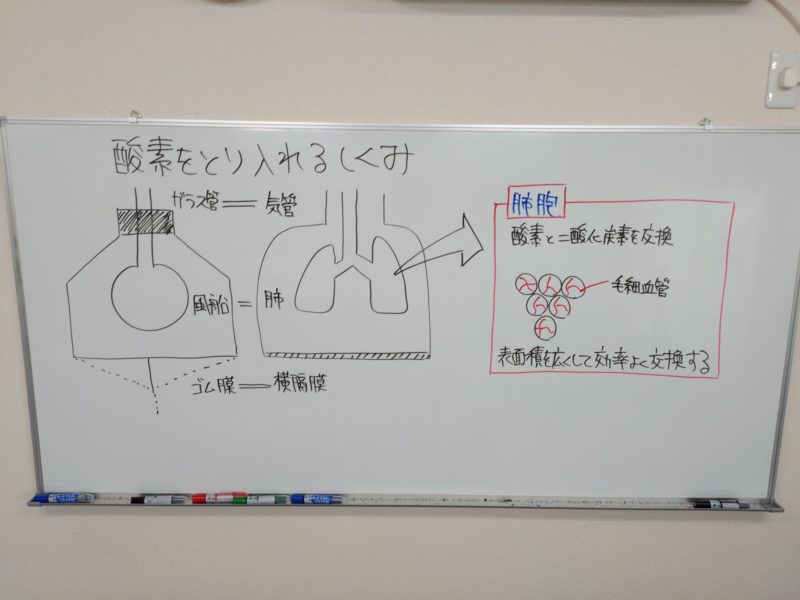 酸素をとり入れるしくみ
ガラス管＝気管
風船＝肺
ゴム膜＝横隔膜
肺胞
酸素と二酸化炭素を交換
毛細血管
表面積を広くして効率よく交換する